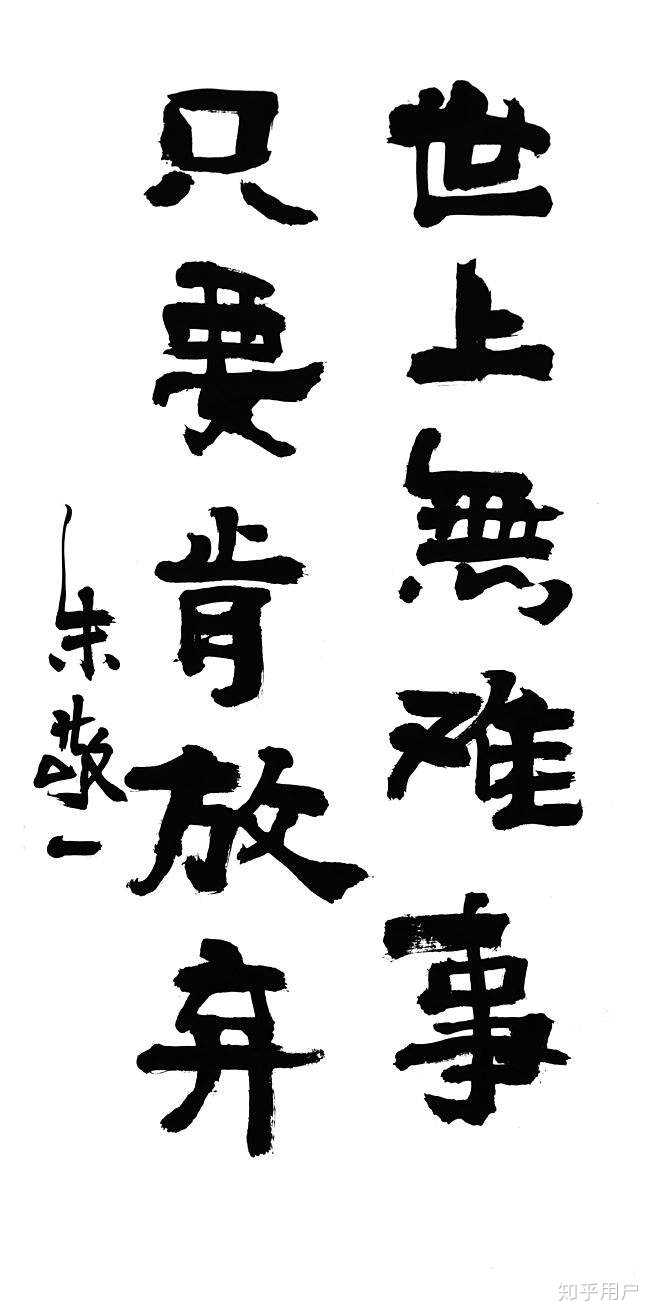 世上無难事
只要肯放弃
朱敬一
知乎用户